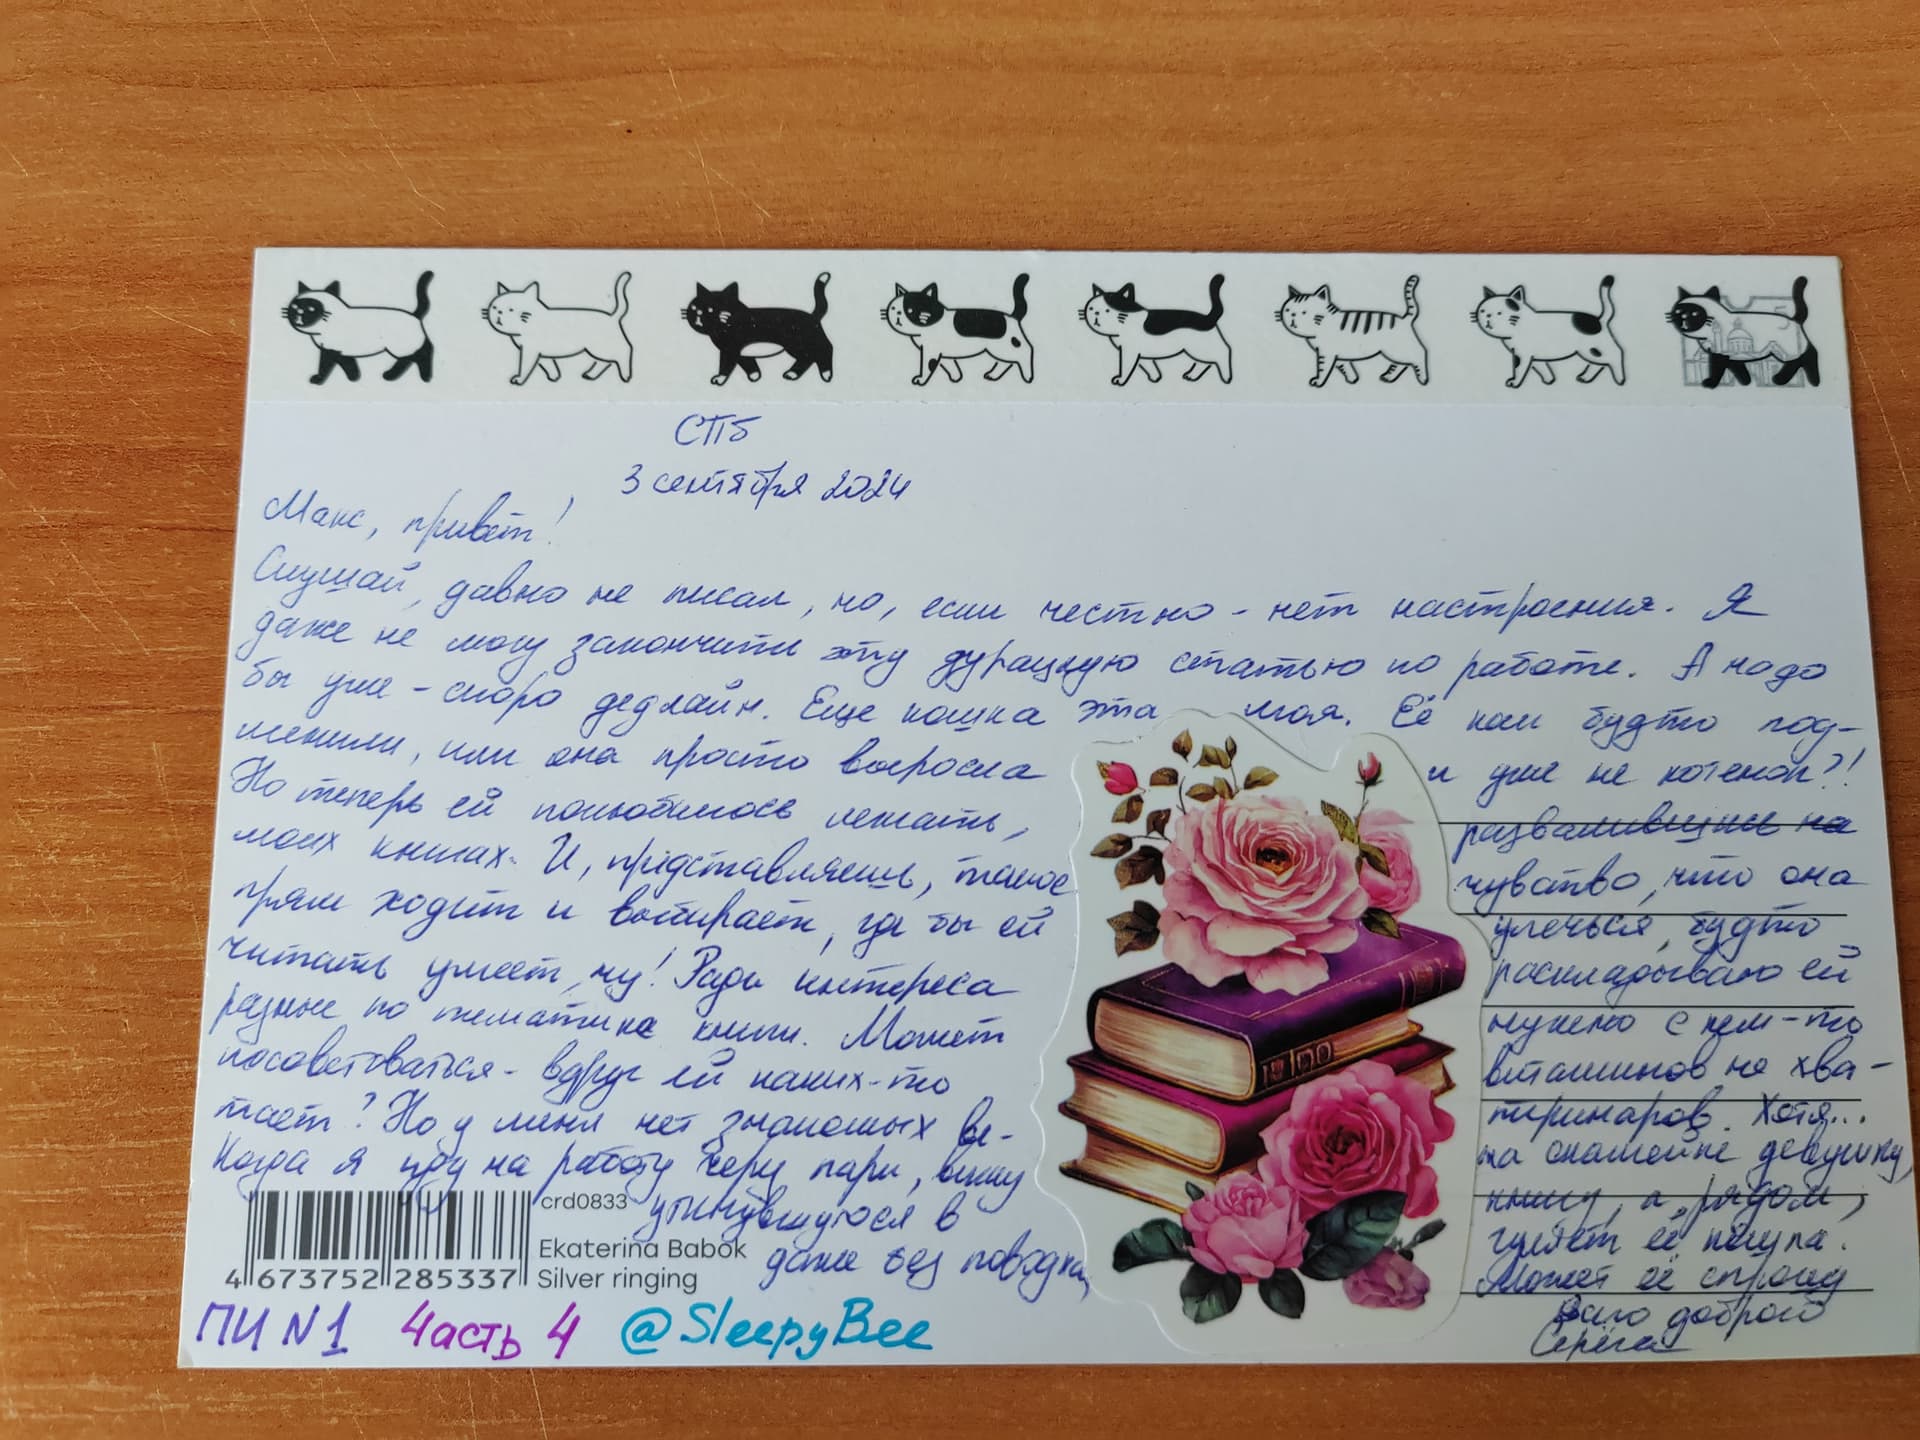 СПб
3 сентября 2024
Макс, привет!
Слушай, давно не писал, но, если честно - нет настроения. Я
даже не могу закончить эту дурацкую статью по работе. А надо
бы уже - скоро дедлайн. Еще кошка эта моя. Её как будто под-
менили, или она просто выросла и уже не котенок?!
Но теперь ей полюбилось лежать, развалившись на
моих книгах. И, представляешь, такое чувство, что она
прям ходит и выбирает, где бы ей улечься, будто
читать умеет, ну! Ради интереса раскладываю ей
разные по тематике книги. Может нужно с кем-то
посоветоваться - вдруг ей каких-то витаминов не хва-
тает? Но у меня нет знакомых ве-теринаров. Хотя...
Когда я иду на работу через парк, вижу на скамейке девушку,
уткнувшуюся в книгу, а рядом,
даже без поводка, гуляет её
Может её спрошу
Всего доброго
Серёга
crd0833
Ekaterina Babok
Silver ringing
4 673752 285337
ПИ N1 Часть 4 @SleepyBee